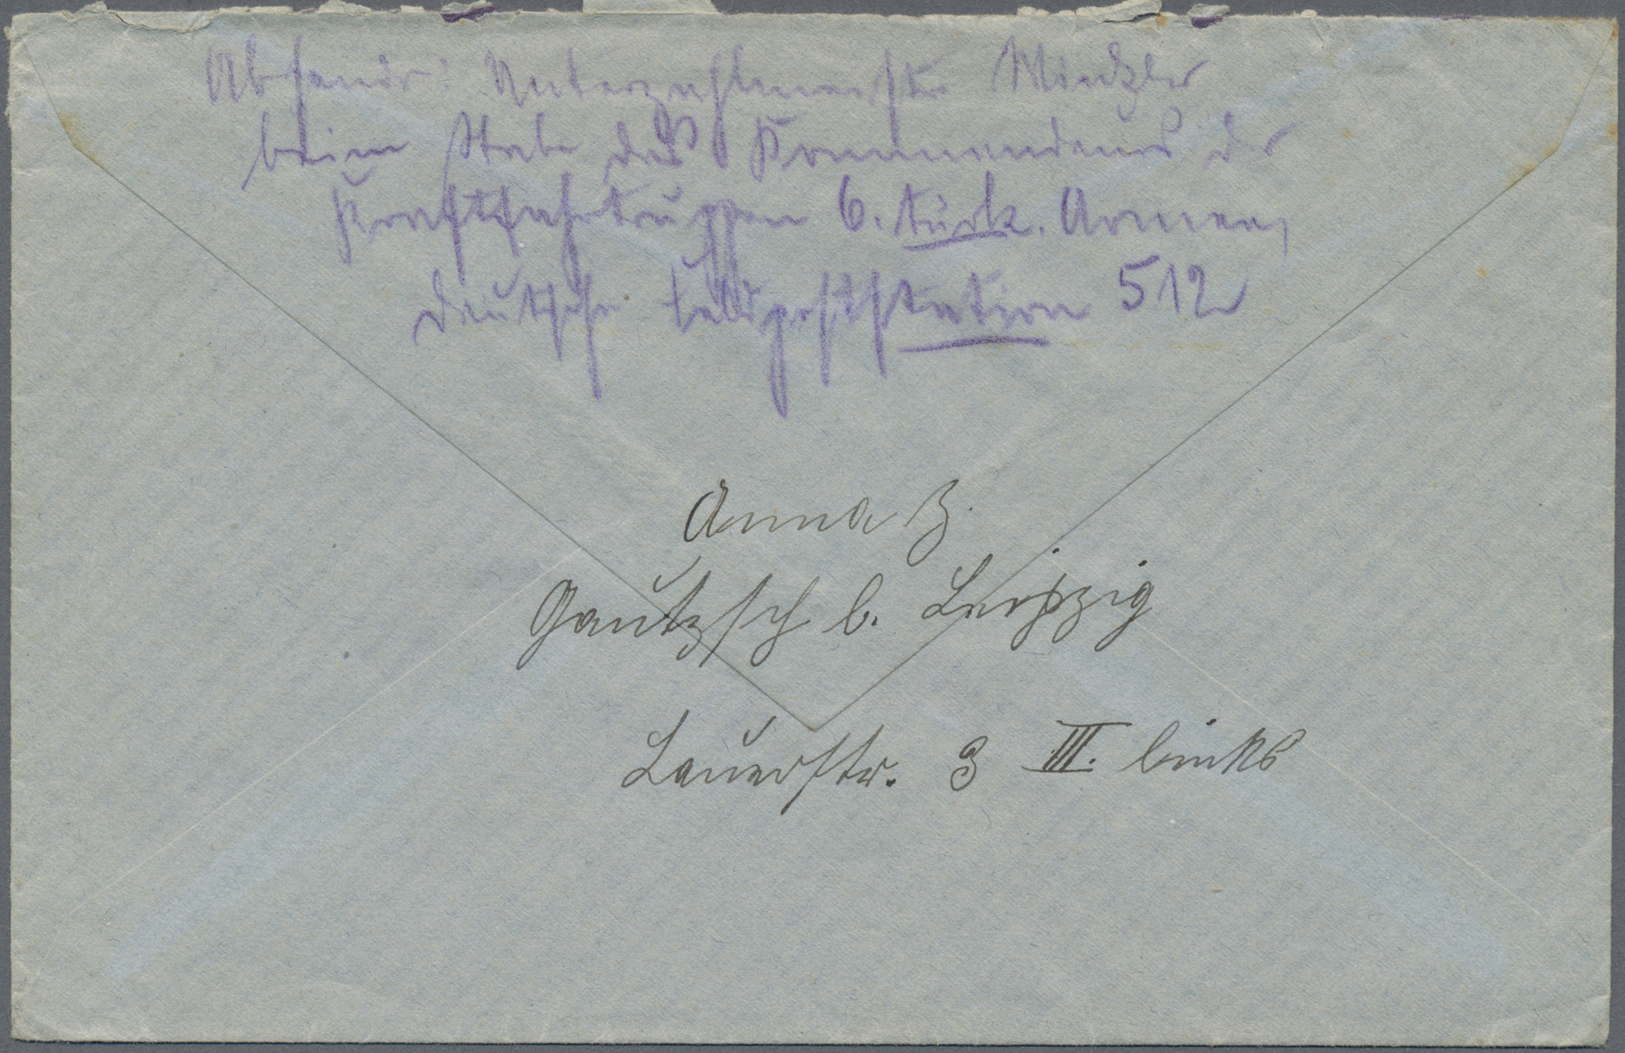 Absender: Unterzahlmeister Winkler
beim Stabe des Kommandeurs der
Kraftfahrtruppen 6. türk. Armee,
deutsche Feldpoststation 512
Anna B.
Gautzsch b. Leipzig
Lauerstr. 3 III. links